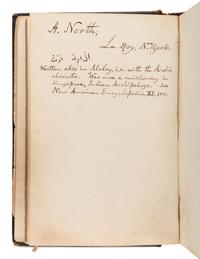 A. North,
Le Roy, N. York.
Written also in Malay, i.e. with the Arabic
character. Was once a missionary in
Singapore, Indian Archipelago. See
New American Encyclopædia, XI,